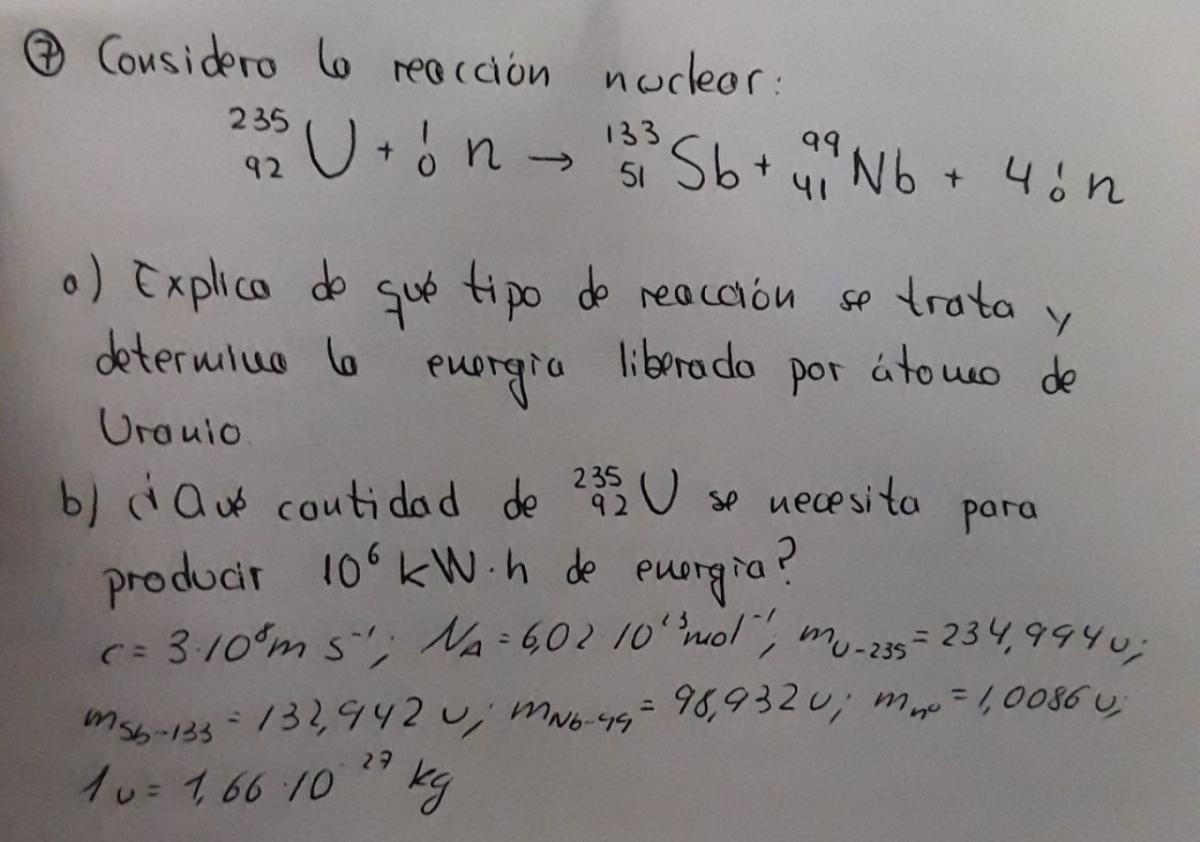 ⑦ Considera la reacción nuclear:
²³⁵₉₂U + ¹₀n → ¹³³₅₁Sb + ⁹⁹₄₁Nb + 4 ¹₀n
a) Explica de qué tipo de reacción se trata y
determina la energía liberada por átomo de
Uranio.
b) ¿Qué cantidad de ²³⁵₉₂U se necesita para
producir 10⁶ kW·h de energía?
c = 3·10⁸ m s⁻¹; N_A = 6,02·10²³ mol⁻¹; m_U-235 = 234,994 u;
m_Sb-133 = 132,942 u; m_Nb-99 = 98,932 u; m_n⁰ = 1,0086 u;
1 u = 1,66·10⁻²⁷ kg